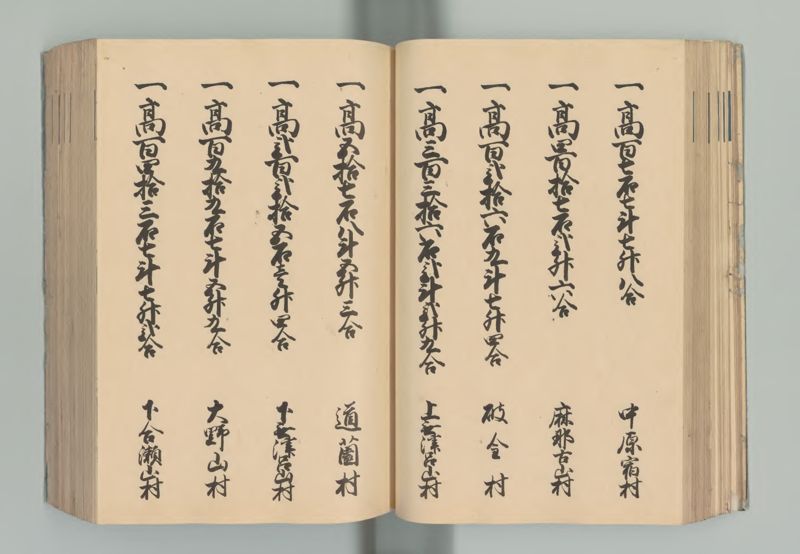 一高百七石七斗七升八合 中原宿村
一高四百拾七石弐升六合 麻那古山村
一高百弐拾六石九斗七升四合 破全村
一高三百三拾六石弐斗弐升九合 上無津呂山村
一高五拾七石八斗五升三合 道薗村
一高弐百弐拾五石壱升四合 下無津呂山村
一高百九拾九石七斗五升九合 大野山村
一高百四拾三石七斗七升弐合 下合瀬山村